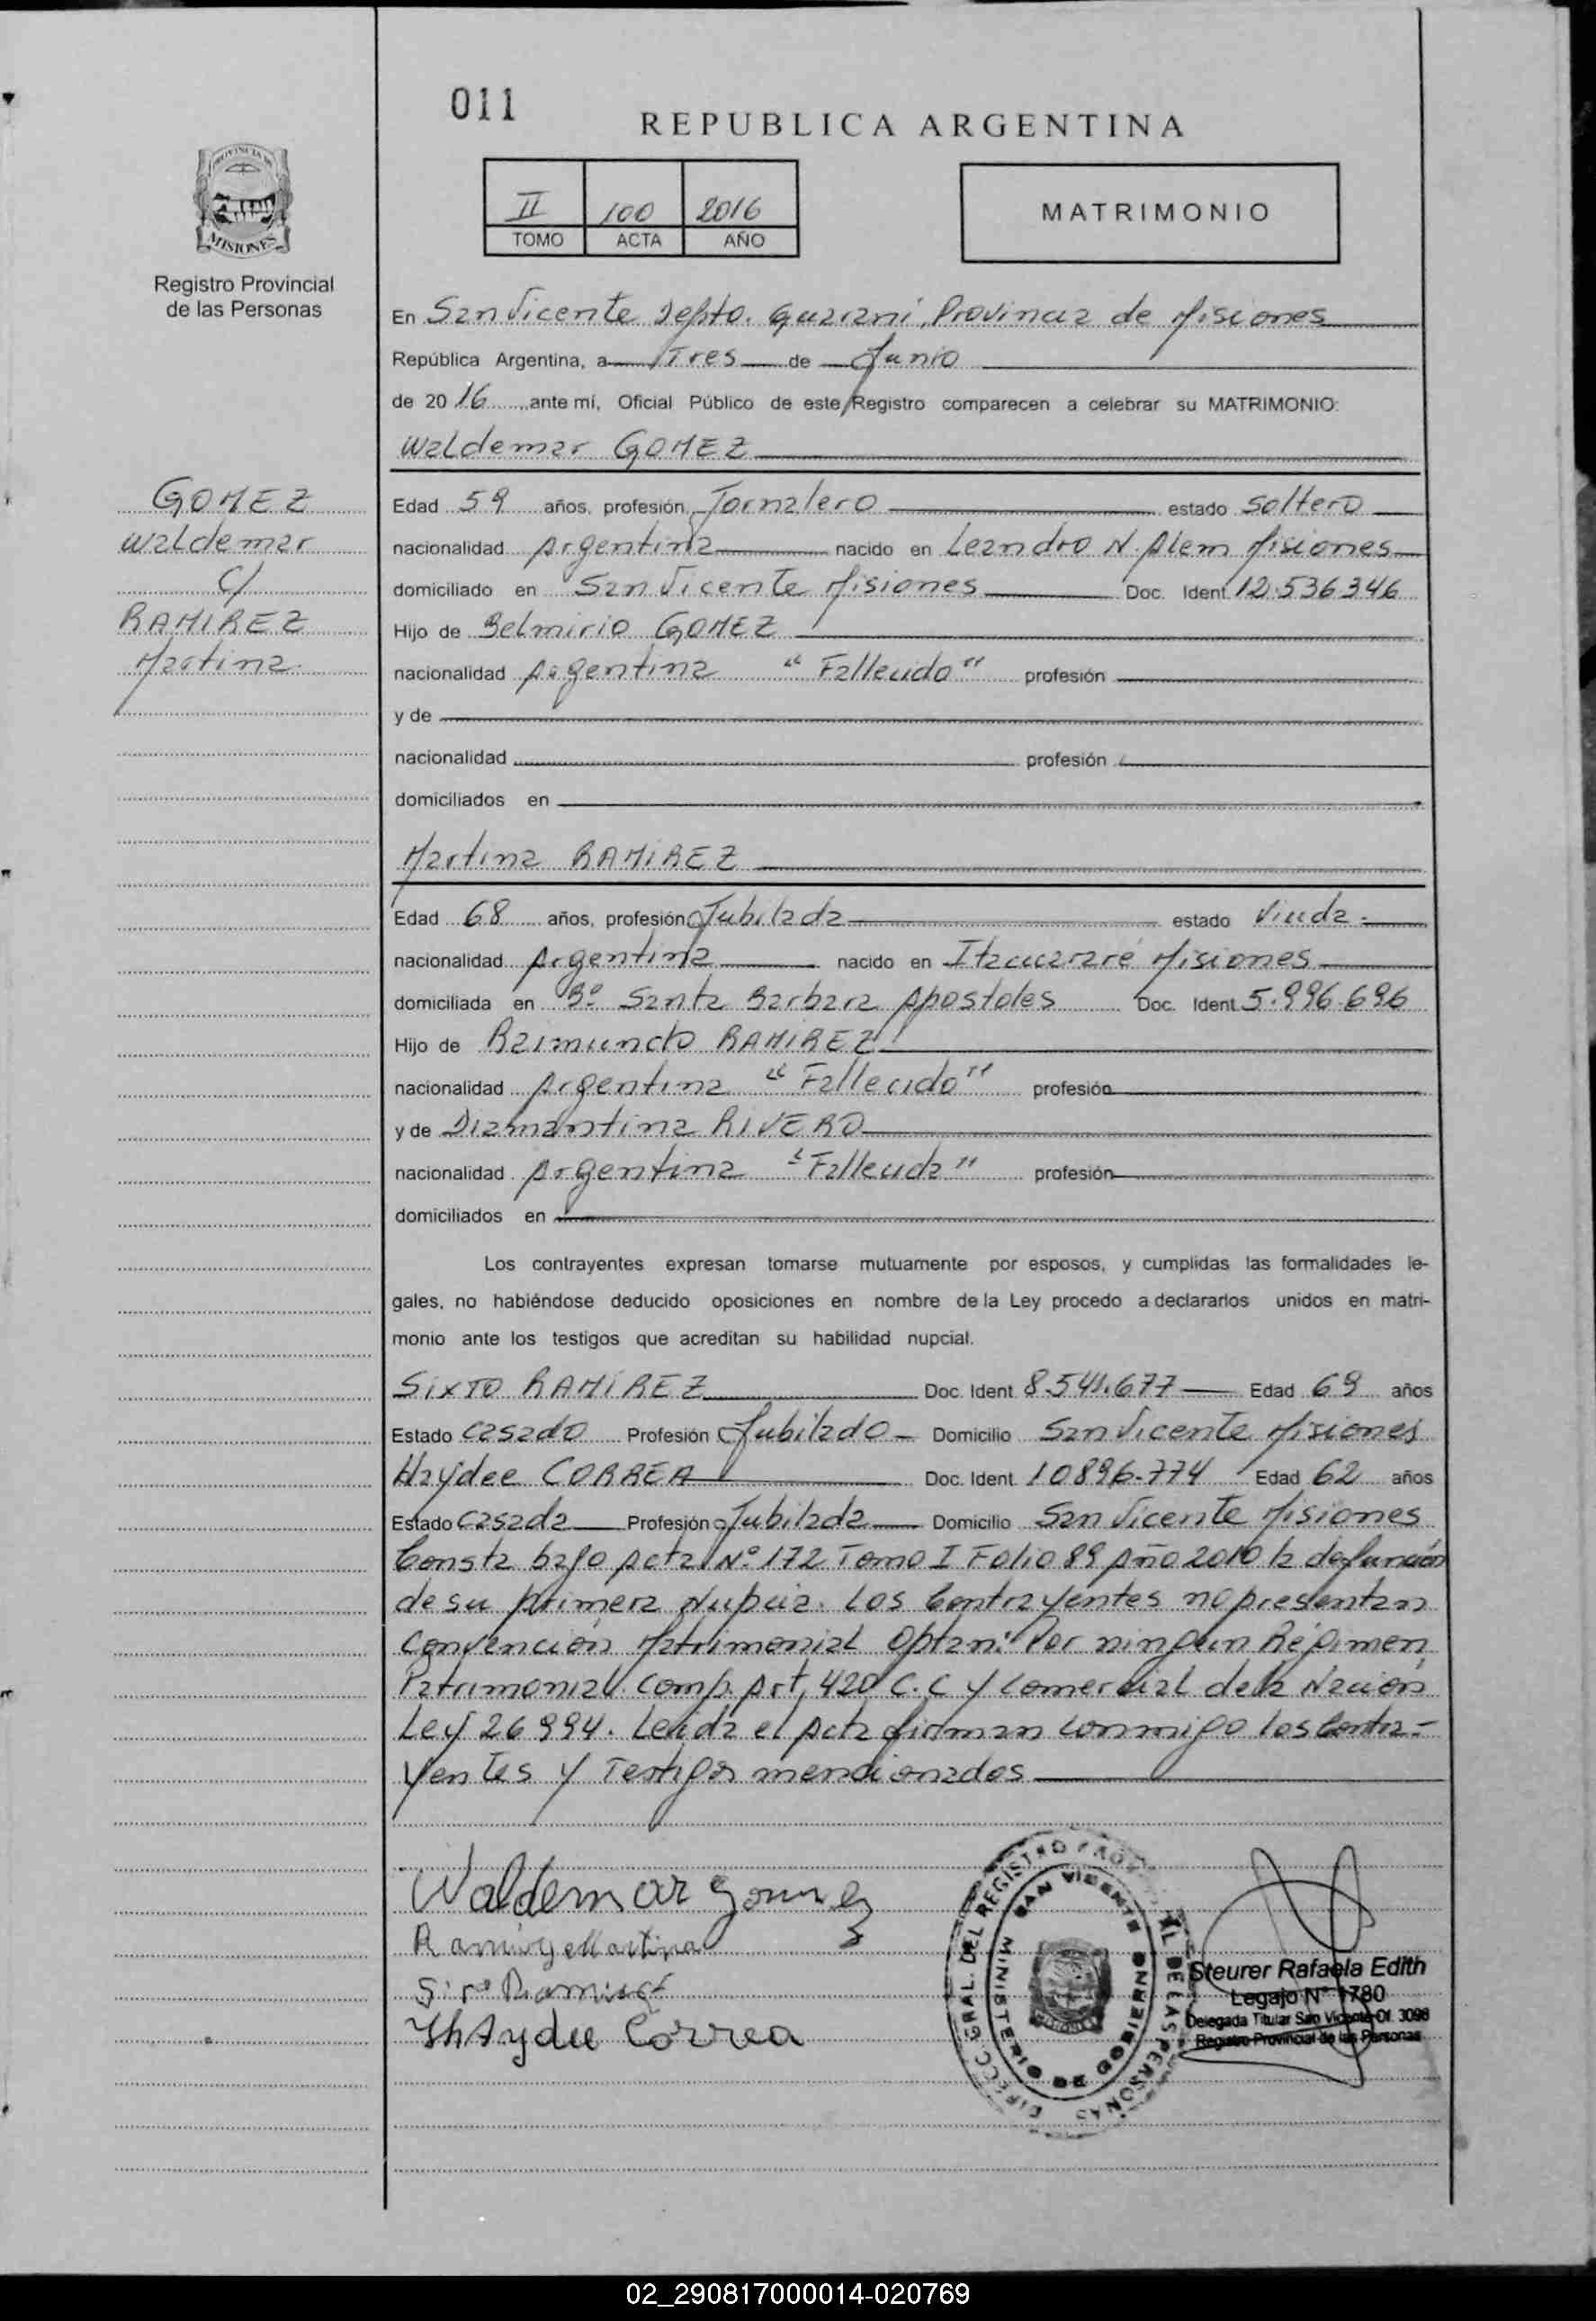 011
REPUBLICA ARGENTINA
PROVINCIA DE
MISIONES
Registro Provincial
de las Personas
II 100 2016
TOMO ACTA AÑO
MATRIMONIO
En San Vicente Depto. Guarani, Provincia de Misiones
República Argentina, a Tres de Junio
de 2016 ante mí, Oficial Público de este Registro comparecen a celebrar su MATRIMONIO:
Waldemar GOMEZ
GOMEZ
Waldemar
C/
RAMIREZ
Martina.
Edad 59 años, profesión Jornalero estado Soltero
nacionalidad Argentina nacido en Leandro N. Alem Misiones
domiciliado en San Vicente Misiones Doc. Ident. 12.536.346
Hijo de Belmirio GOMEZ
nacionalidad Argentina "Fallecido" profesión
y de
nacionalidad profesión
domiciliados en
Martina RAMIREZ
Edad 68 años, profesión Jubilada estado Viuda.
nacionalidad Argentina nacido en Itacuararé Misiones
domiciliada en Bº Santa Barbara Apostoles Doc. Ident. 5.996.696
Hijo de Raimundo RAMIREZ
nacionalidad Argentina "Fallecido" profesión
y de Diamantina RIVERO
nacionalidad Argentina "Fallecida" profesión
domiciliados en
Los contrayentes expresan tomarse mutuamente por esposos, y cumplidas las formalidades le-
gales, no habiéndose deducido oposiciones en nombre de la Ley procedo a declararlos unidos en matri-
monio ante los testigos que acreditan su habilidad nupcial.
Sixto RAMIREZ Doc. Ident. 8.541.677 Edad 69 años
Estado Casado Profesión Jubilado Domicilio San Vicente Misiones
Haydee CORREA Doc. Ident. 10896.774 Edad 62 años
Estado Casada Profesión Jubilada Domicilio San Vicente Misiones
Consta bajo Acta Nº 172 Tomo I Folio 89 Año 2010 la defunción
de su primera Nupcia. Los Contrayentes no presentan
Convención Matrimonial Optan: Por ningun Régimen
Patrimonial. Comp. Art. 420 C.C y Comercial de la Nación
Ley 26994. Leida el Acta firman conmigo los Contra-
yentes y Testigos mencionados
Waldemar Gomez
Ramirez Martina
Ramirez
Haydee Correa
DIRECC. GRAL. DEL REGISTRO PROV. DE LAS PERSONAS
SAN VICENTE
MINISTERIO DE GOBIERNO
Steurer Rafaela Edith
Legajo Nº 1780
Delegada Titular San Vicente Of. 3098
Registro Provincial de las Personas
02_290817000014-020769